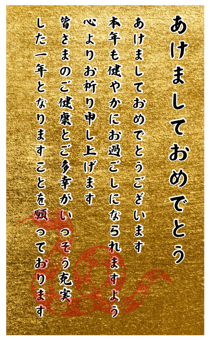 あけましておめでとう
あけましておめでとうございます
本年も健やかにお過ごしになられますよう
心よりお祈り申し上げます
皆さまのご健康とご多幸がいっそう充実
した一年となりますことを願っております